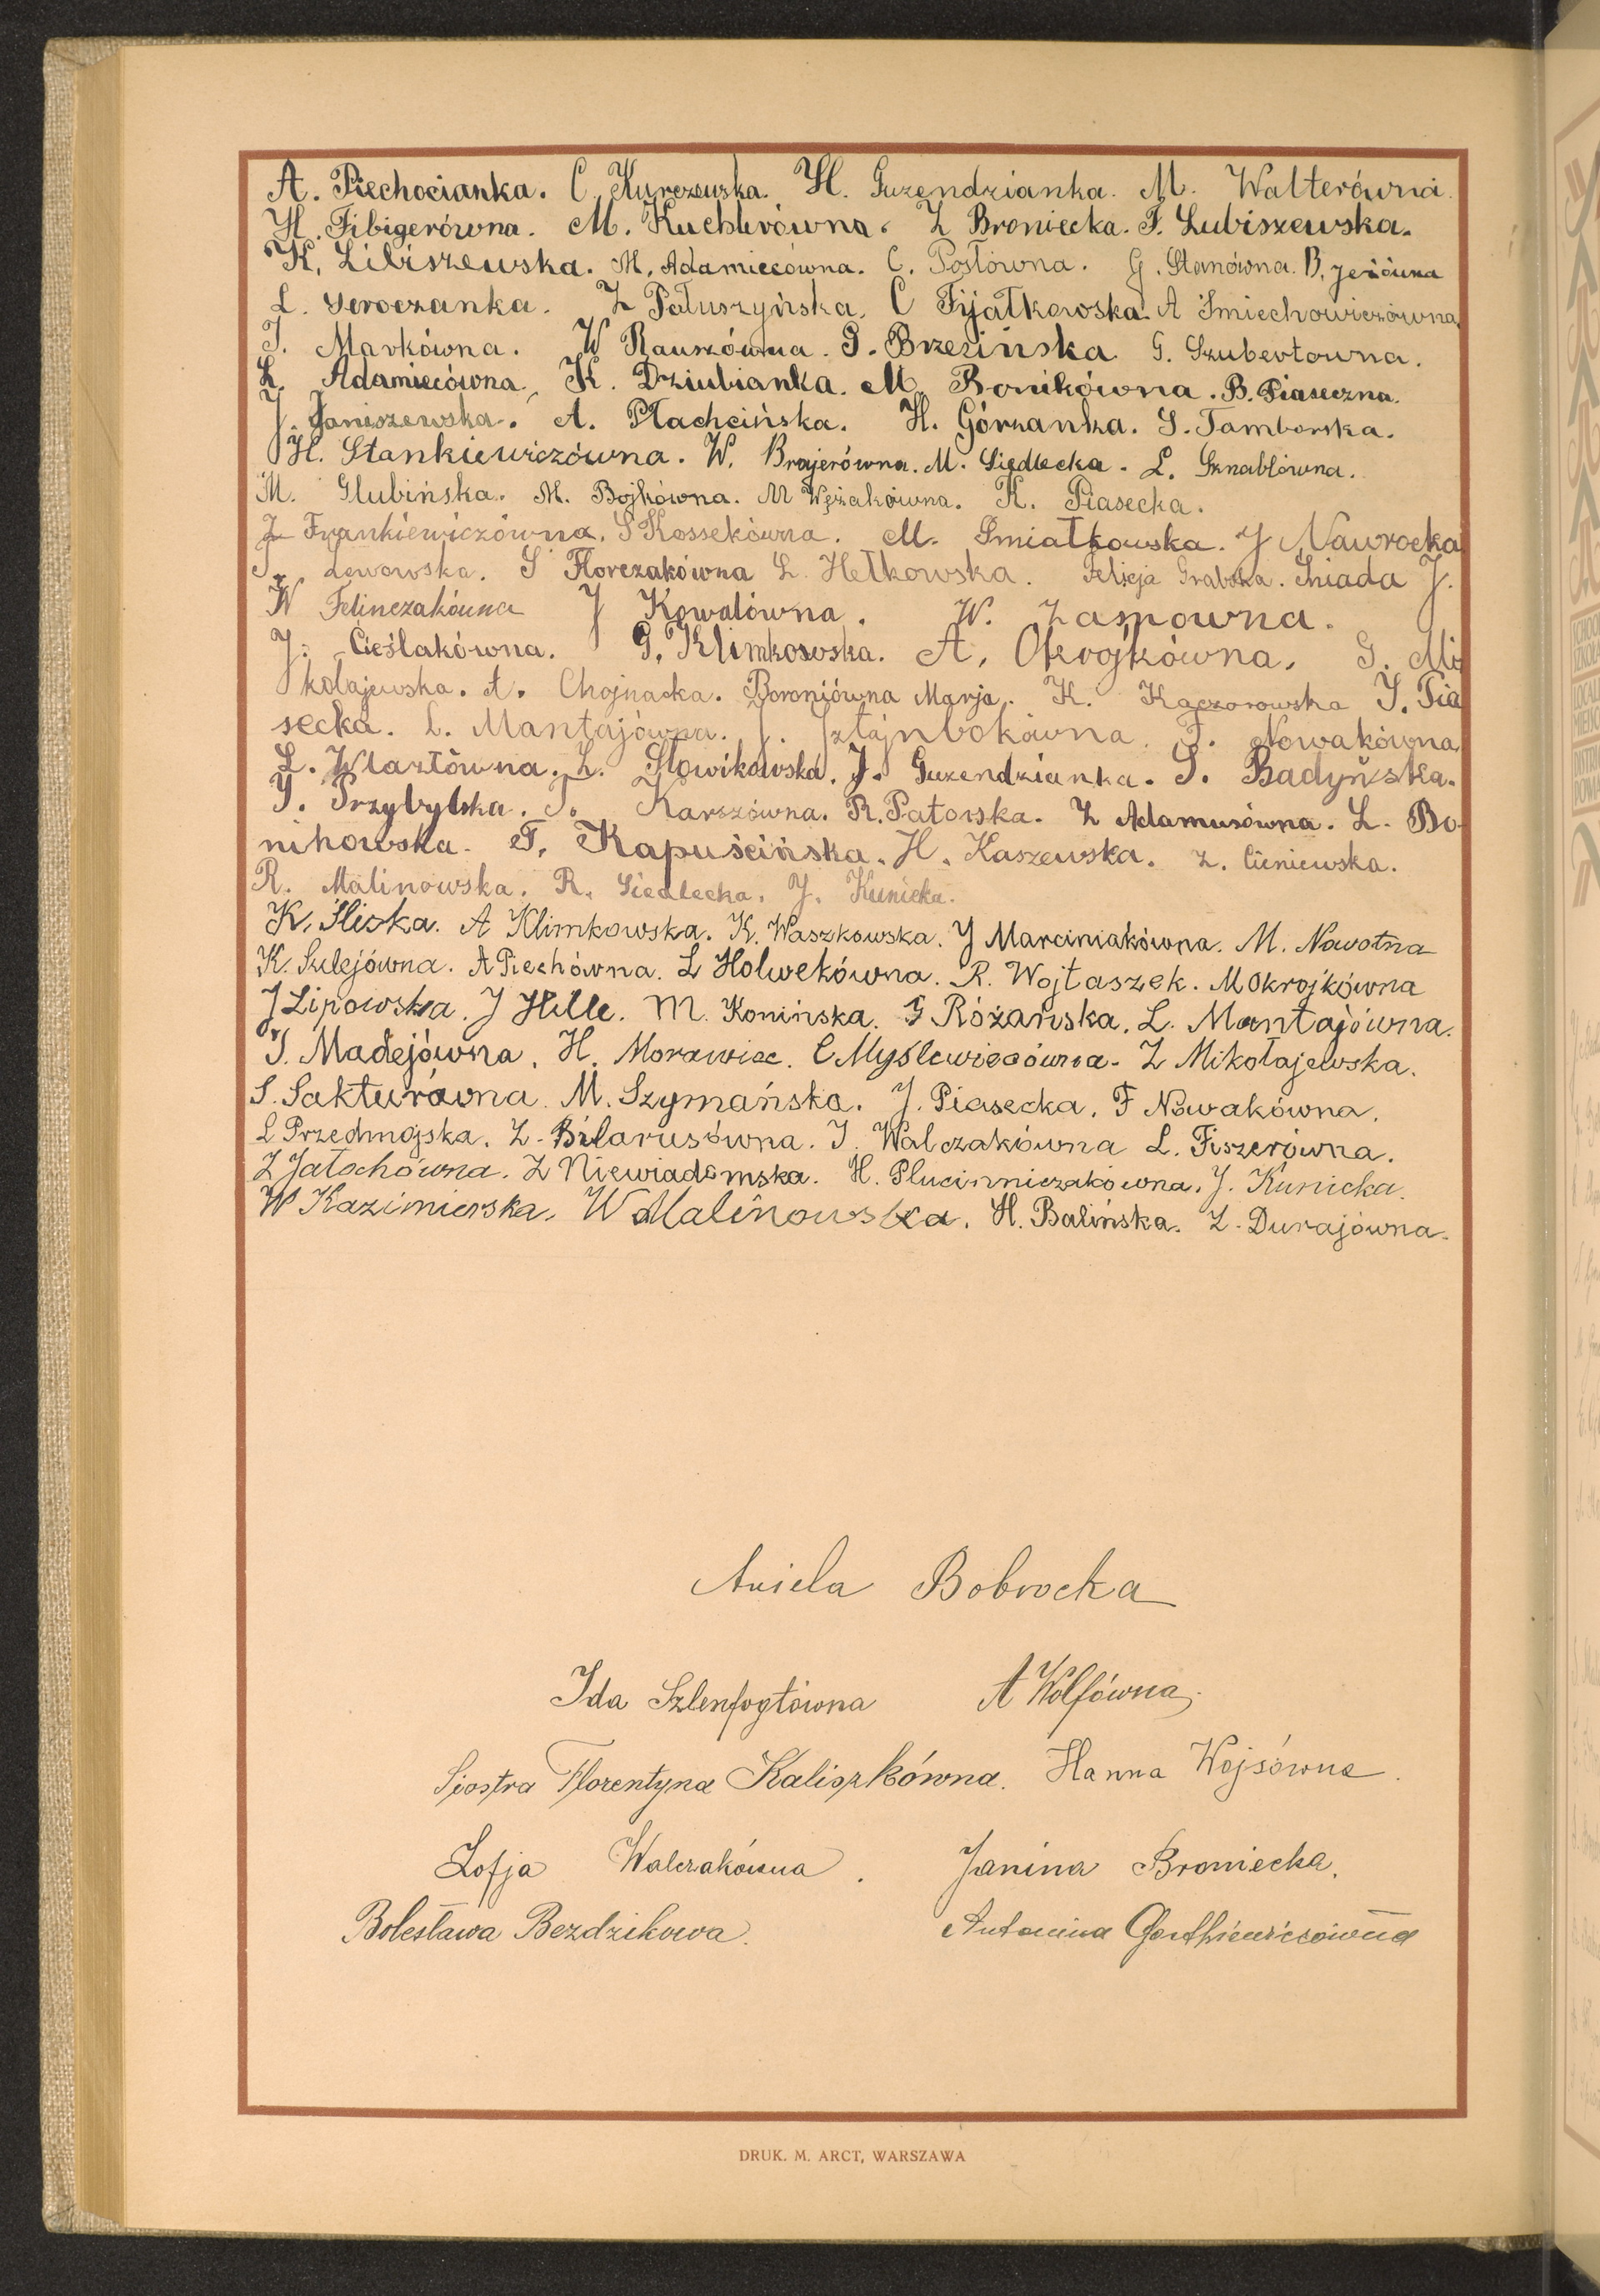 A. Piechocianka. C. Kurczewska. H. Guzendzianka. M. Walterówna.
H. Fibigerówna. M. Kuchlerówna. Z Broniecka. F. Lubiszewska.
K. Libiszewska. M. Adamiecówna. C. Postówna. G. Stanówna. B. Jeżówna
L. Seroczanka. Z Pałuszyńska. C Fijałkowska. A Śmiechowiczówna.
J. Markówna. W Rauszówna. G. Brzezińska G. Szubertowna.
L. Adamiecówna, K. Dziubianka. M. Bonikówna. B. Piaseczna.
J. Janiszewska. A. Płachcińska. H. Górzanka. S. Tamborska.
H. Stankiewiczówna. W. Brajerówna. M. Siedlecka. L. Sznablówna.
M. Głubińska. M. Bojkówna. M Wężakówna. K. Piasecka.
Z Frankiewiczówna. S Kossekówna. M. Śmiałkowska. J Nawrocka
lewowska. S Florczakówna L. Hełkowska. Felicja Grabska. Śniada J.
W Felinczakówna J Kowalówna. W. Zasnowna.
J. Cieślakówna. G. Klimkowska. A. Okrojkówna. G. Mi
kołajewska. A. Chojnacka. Boroniówna Marja. K. Kaczorowska J. Pia
secka. L. Mantajówna. J. Sztajnbokówna. F. Nowakówna
L. Wlazłówna. L. Słowikowska. J. Guzendzianka. S. Badyńska.
J. Przybylska. T. Karszówna. R. Patorska. Z Adamusówna. L. Bo-
nikowska. F. Kapuścińska. H. Kaszewska. Z. Cieniewska.
R. Malinowska. R. Siedlecka. J. Kunicka.
K. Śliska. A Klimkowska. K. Waszkowska. J Marciniakówna. M. Nowotna
K. Szulejówna. A Piechówna. L Holwekówna. R. Wojtaszek. M Okrojkówna
J Lipowska. J Hille. M. Konińska. G Różańska. L. Mantajówna.
J. Madejówna. H. Morawiec. C Myślewiecówna. Z Mikołajewska.
S. Sakturówna. M. Szymańska. J. Piasecka. F Nowakówna.
L Przedmojska. Z. Bilarusówna. J. Walczakówna L. Fiszerówna.
Z Jatochówna. Z Niewiadomska. H. Pluciniczakówna. J. Kunicka.
W Kazimierska. W Malinowska. H. Balińska. Z. Durajówna.
Aniela Bobrocka
Ida Szlenfogtówna A Wolfówna
Siostra Florentyna Kaliszkówna. Hanna Wojsówna.
Zofja Walczakówna. Janina Broniecka.
Bolesława Bezdzikowa. Antonina
DRUK. M. ARCT, WARSZAWA